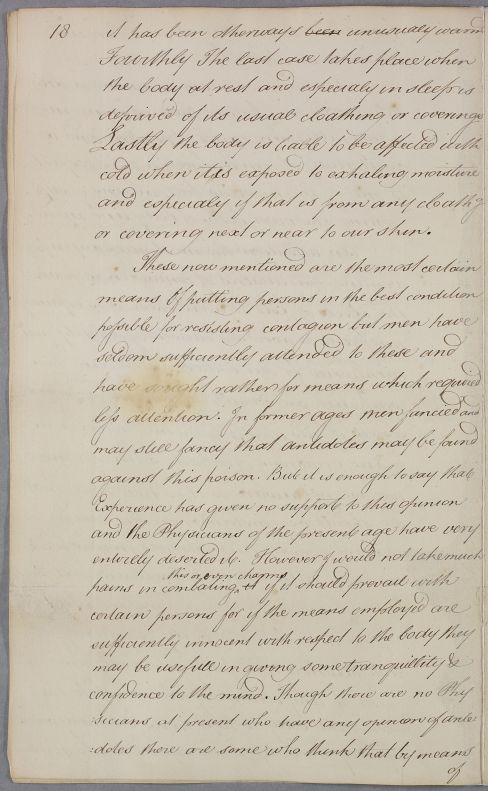 18 it has been otherways been unusualy warm
Fourthly The last case takes place when
the body at rest and especialy in sleep is
deprived of its usual cloathing or coverings
Lastly the body is liable to be affected with
cold when it is exposed to exhaling moisture
and especialy if that is from any cloathg
or covering next or near to our skin.
These now mentioned are the most certain
means of putting persons in the best condition
possible for resisting contagion but men have
seldom sufficiently attended to these and
have sought rather for means which required
less attention. In former ages men fancied and
may still fancy that antidotes may be found
against this poison. But it is enough to say that
Experience has given no support to this opinion
and the Physicians of the present age have very
entirely deserted it. However I would not take much
this or even charms
pains in combating it if it should prevail with
certain persons for if the means employ'd are
sufficiently innocent with respect to the body they
may be usefull in giving some tranquillity &
confidence to the mind. Though there are no Phy
:sicians at present who have any openion of anti
:dotes there are some who think that by means
of